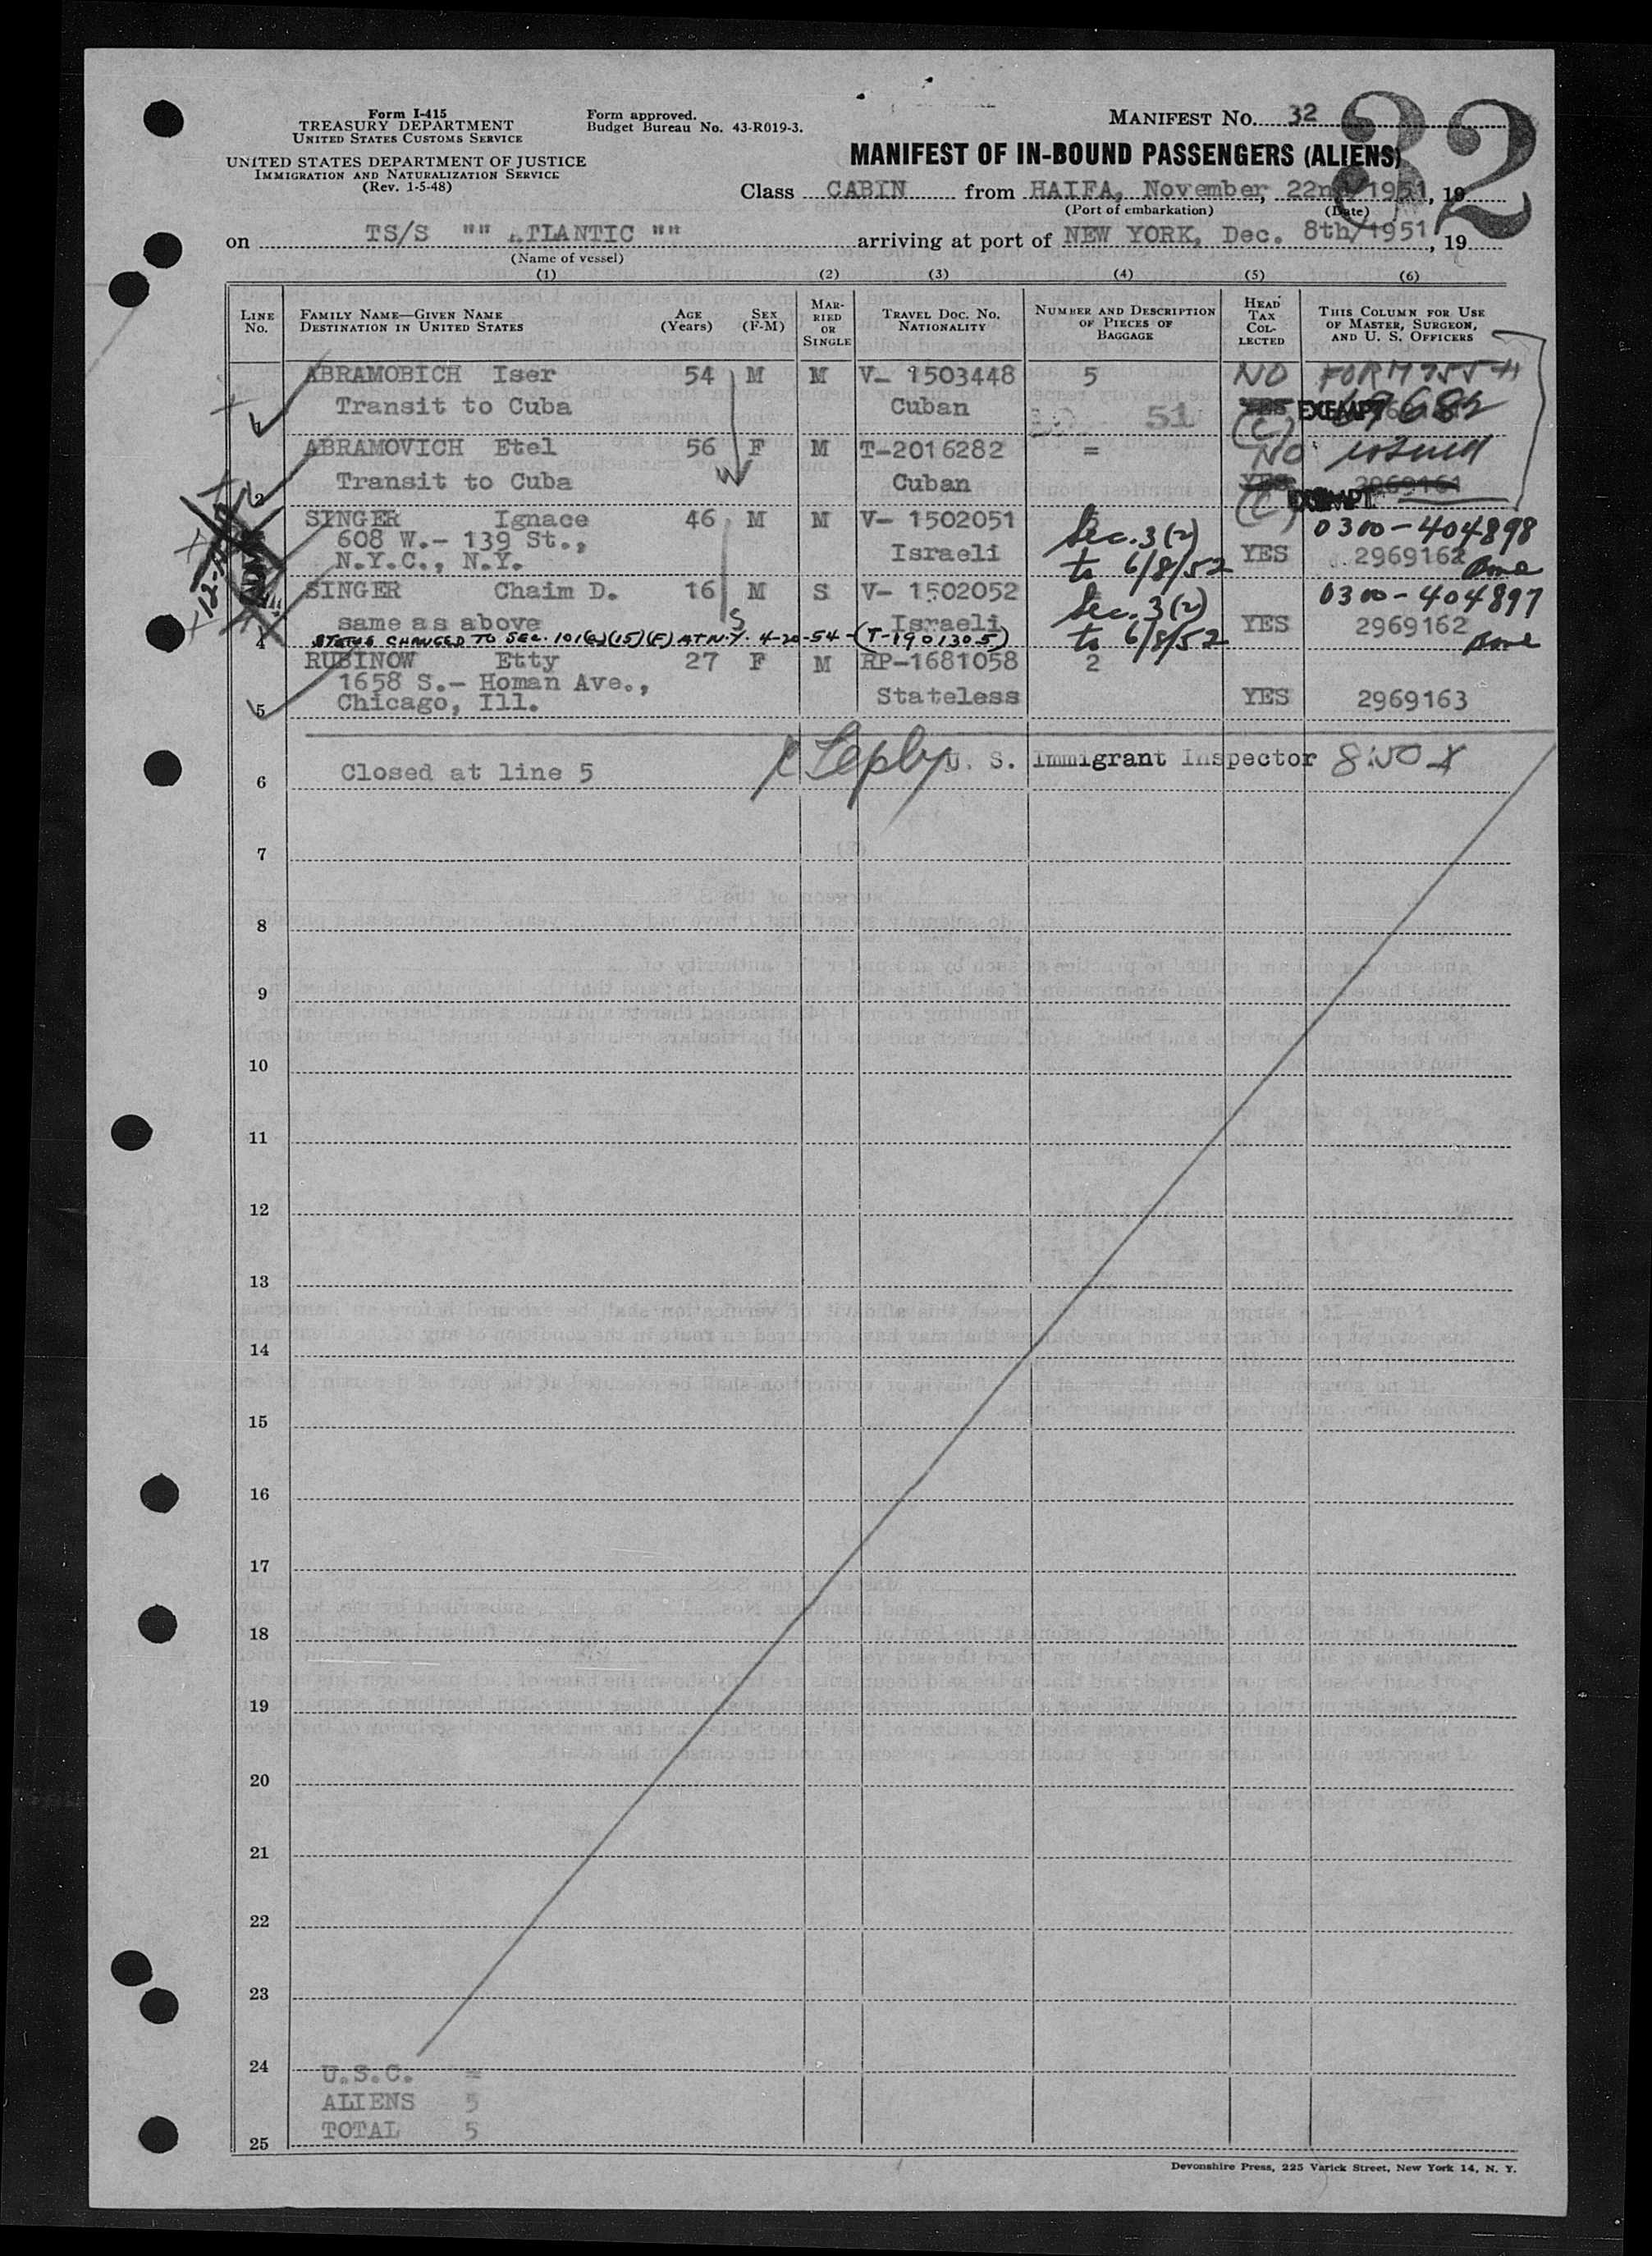 Form I-415
TREASURY DEPARTMENT
UNITED STATES CUSTOMS SERVICE
UNITED STATES DEPARTMENT OF JUSTICE
IMMIGRATION AND NATURALIZATION SERVICE
(Rev. 1-5-48)
Form approved.
Budget Bureau No. 43-R019-3.
MANIFEST No. 32
32
MANIFEST OF IN-BOUND PASSENGERS (ALIENS)
Class CABIN from HAIFA, November, 22nd/1951, 19
(Port of embarkation) (Date)
on TS/S "" ATLANTIC "" arriving at port of NEW YORK, Dec. 8th/1951, 19
(Name of vessel)
(1) (2) (3) (4) (5) (6)
LINE No. FAMILY NAME—GIVEN NAME DESTINATION IN UNITED STATES AGE (Years) SEX (F-M) MARRIED OR SINGLE TRAVEL DOC. No. NATIONALITY NUMBER AND DESCRIPTION OF PIECES OF BAGGAGE HEAD TAX COLLECTED THIS COLUMN FOR USE OF MASTER, SURGEON, AND U. S. OFFICERS
1 ABRAMOBICH Iser 54 M M V- 1503448 5 NO FORM
Transit to Cuba Cuban 51 YES EXEMPT
(C)
2 ABRAMOVICH Etel 56 F M T-2016282 = NO
Transit to Cuba Cuban YES EXEMPT 2969161
W (C)
SINGER Ignace 46 M M V- 1502051 Sec. 3(2) 0300-404898
608 W.- 139 St., Israeli to 6/8/52 YES 2969162
N.Y.C., N.Y.
4 SINGER Chaim D. 16 M S V- 1502052 Sec. 3(2) 0300-404897
same as above S Israeli to 6/8/52 YES 2969162
STATUS CHANGED TO SEC. 101(a)(15)(F) AT N.Y. 4-20-54-(T-1901305)
5 RUBINOW Etty 27 F M RP-1681058 2
1658 S.- Homan Ave., Stateless YES 2969163
Chicago, Ill.
6 Closed at line 5 U. S. Immigrant Inspector
7
8
9
10
11
12
13
14
15
16
17
18
19
20
21
22
23
24 U.S.C. =
ALIENS 5
25 TOTAL 5
Devonshire Press, 225 Varick Street, New York 14, N. Y.